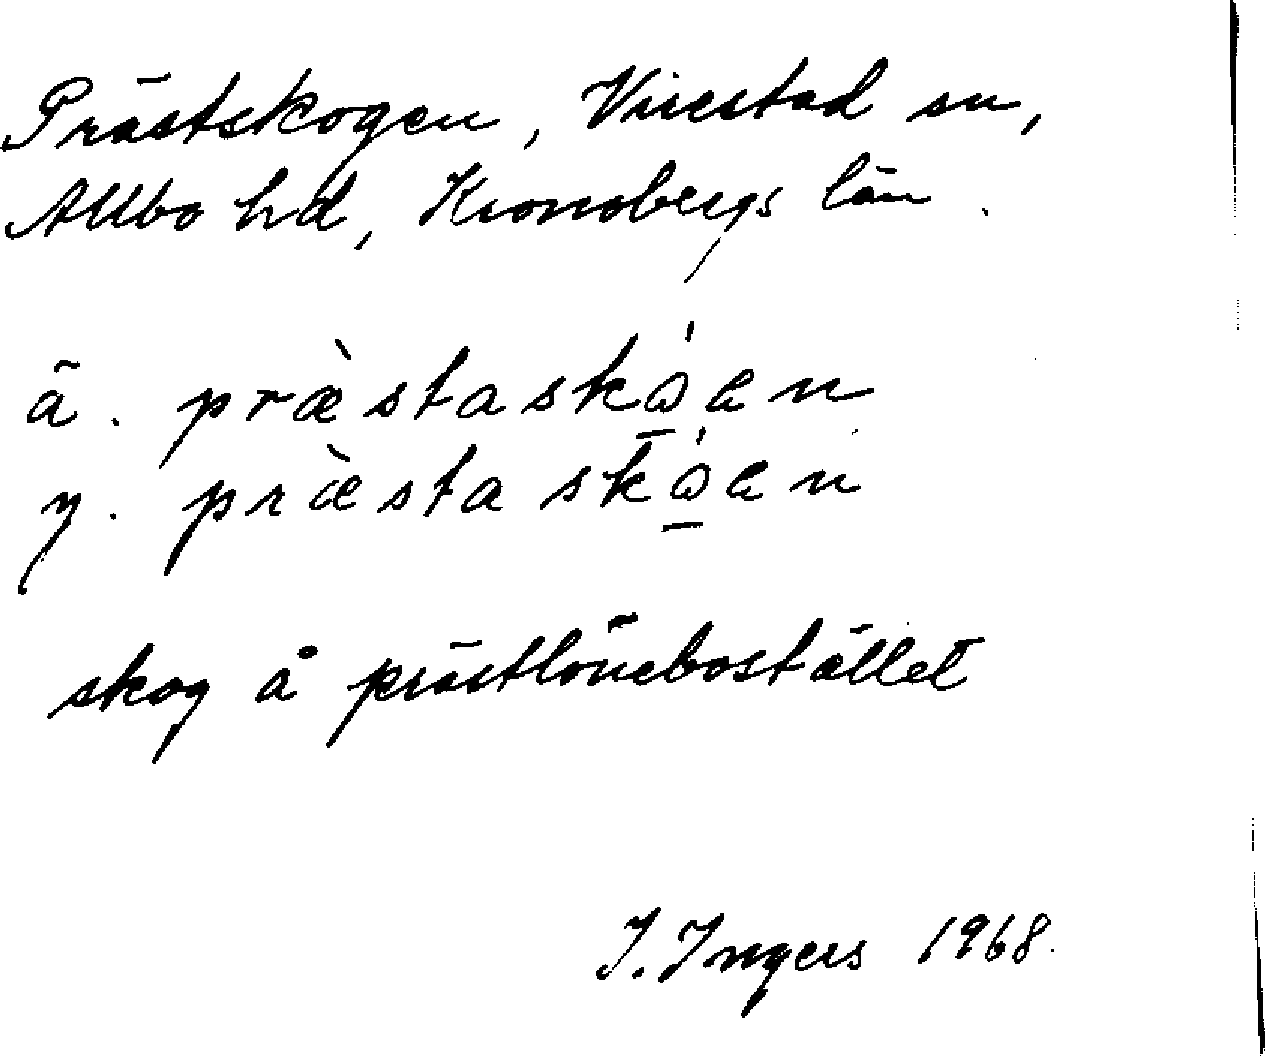 Prästskogen, Virestad sn,
Allbo hd, Kronobergs län.
ä. præ̀staskǫ́en
y. præ̀staskǫ́en
skog å prästlönebostället
I. Ingers 1968.